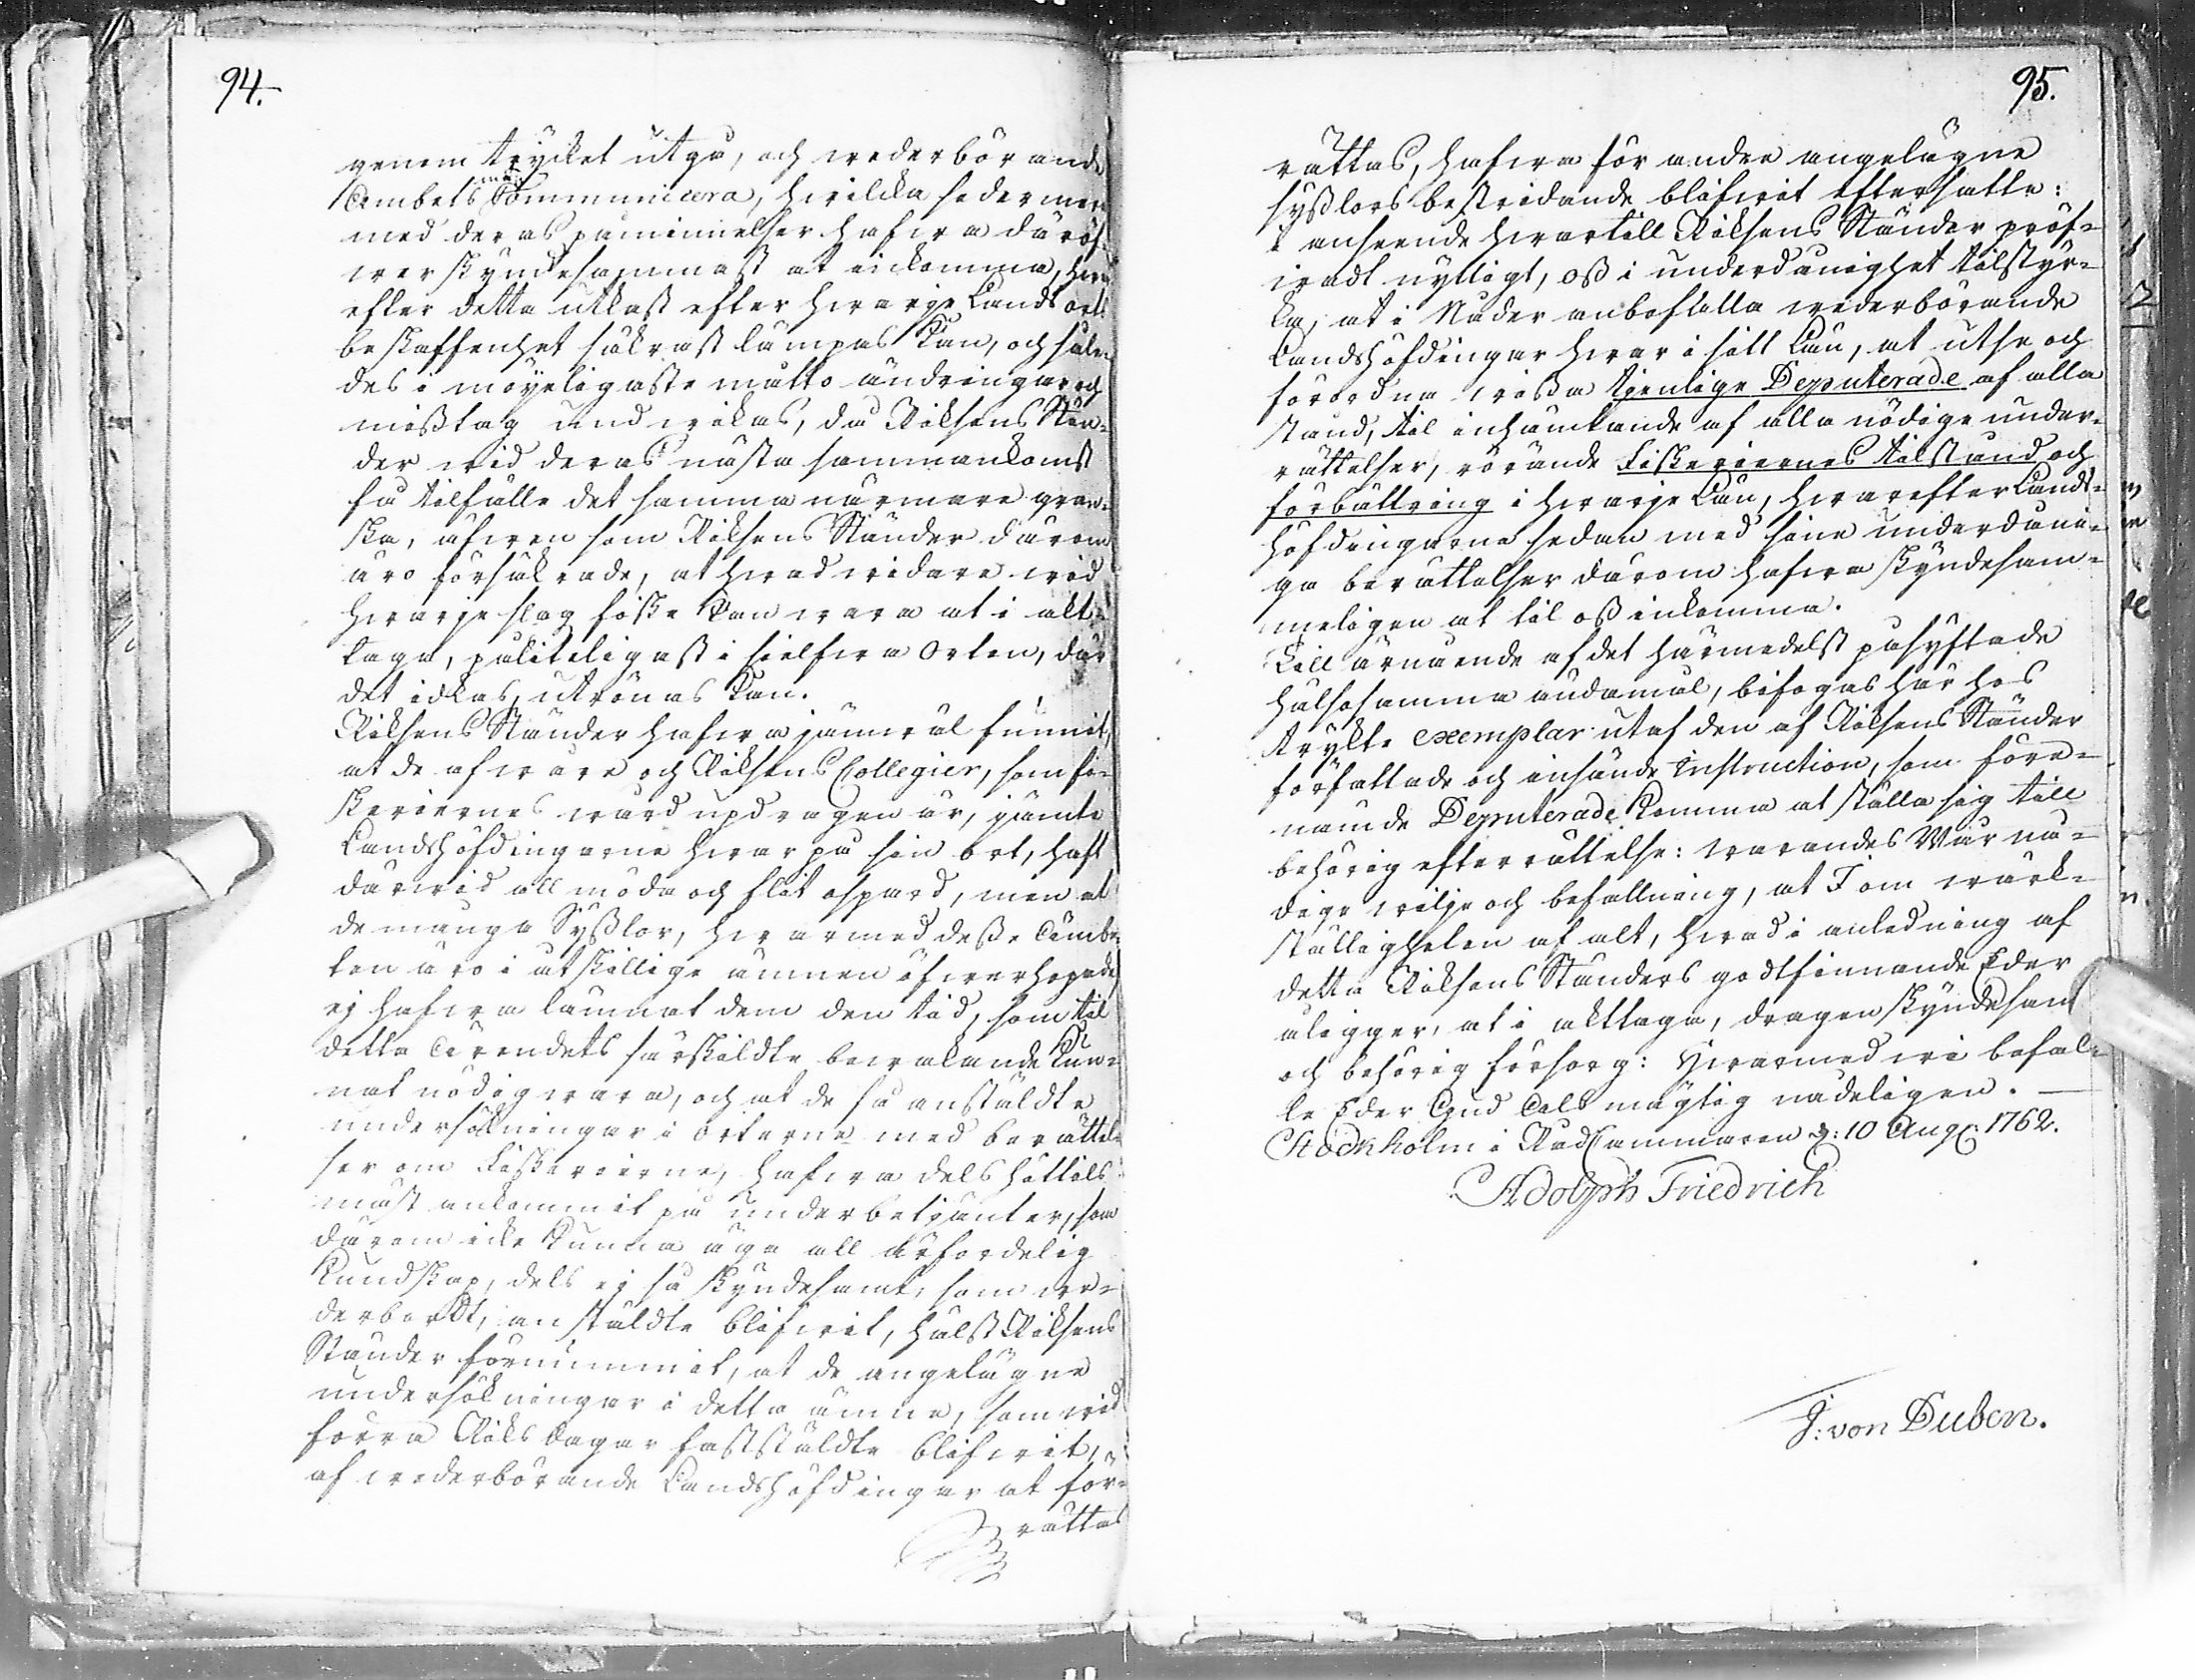 94.
genom trycket utgå, och wederbörande
Ämbets män Communicera, hwilcka sedermera
med deras påminnelser hafwa däröf-
wer skyndesammast at inkomma, huru
efter detta utkast efter hwarje Lands orts
beskaffenhet säkrast lämpas kan, och såle-
des i möyeligaste måtto ändringar och
misstag undwikas, då Riksens Stän-
der wid deras nästa sammankomst
få tilfälle det samma närmare gran-
ska, äfwen som Riksens Ständer därom
äro försäkrade, at hwad widare wid
hwarje slag fiske kan wara at i akt-
taga, påliteligast i sielfwa orten, där
det idkas, utrönas kan.
Riksens Ständer hafwa jämwäl funnit,
at de af wåre och Riksens Collegier, som fi-
skeriernes wård updragen är, jämte
Landshöfdingarne hwar på sin ort, haft
därwid all möda och flit ospard, men at
de många Sysslor, hwarmed desse Ämbe-
ten äro i åtskillige ämnen öfwerhopade
ej hafwa lämnat dem den tid, som til
detta Ärendets särskildte bewakande kun-
nat nödig wara, och at de så anstäldte
undersökningar i orterne med berättel-
ser om Fiskerierne, hafwa dels håttils
mäst ankommit på underbetjänter, som
därom icke kunna äga all ärforderlig
Kundskap, dels ej så skyndesamt, som we-
derbordt, anstäldte blifwit, hälst Riksens
Ständer förnummit, at de angelägne
undersökningar i detta ämne, som wid
förra Riksdagar fastställdte blifwit,
af wederbörande Landshöfdingar at för-
rättas
95.
rättas, hafwa för andre angelägne
sysslors bestridande blifwit eftersatte:
i anseende hwartill Riksens Ständer pröf-
wadt nyttigt, oss i underdånighet tilstyr-
ka, at i Nåder anbefalla wederbörande
Landshöfdingar hwar i sitt Län, at utse och
förordna wissa tjenlige Deputerade af alla
stånd, til inhämtande af alla nödige under-
rättelser, rörande Fiskeriernes tilstånd och
förbättring i hwarje Län, hwarefter Lands-
höfdingarne sedan med sine underdåni-
ga berättelser därom hafwa skyndesam-
meligen at til oss inkomma.
Till ärnående af det härmedelst påsyftade
hälsosamma ändamål, bifogas här hos
trykte exemplar utaf den af Riksens Ständer
författade och insände instruction, som före-
nämde Deputerade komma at ställa sig till
behörig efterrättelse: warandes Wår nå-
dige wilje och befallning, at I om wärk-
ställigheten af alt, hwad i anledning af
detta Riksens Ständers godtfinnande Eder
åligger, at i akttaga, dragen skyndesam
och behörig försorg: Hwarmed wi befal-
le Eder Gud Alsmägtig nådeligen.
Stockholm i RådCammaren d: 10 Aug: 1762.
Adolph Friedrich
J: von Duben.